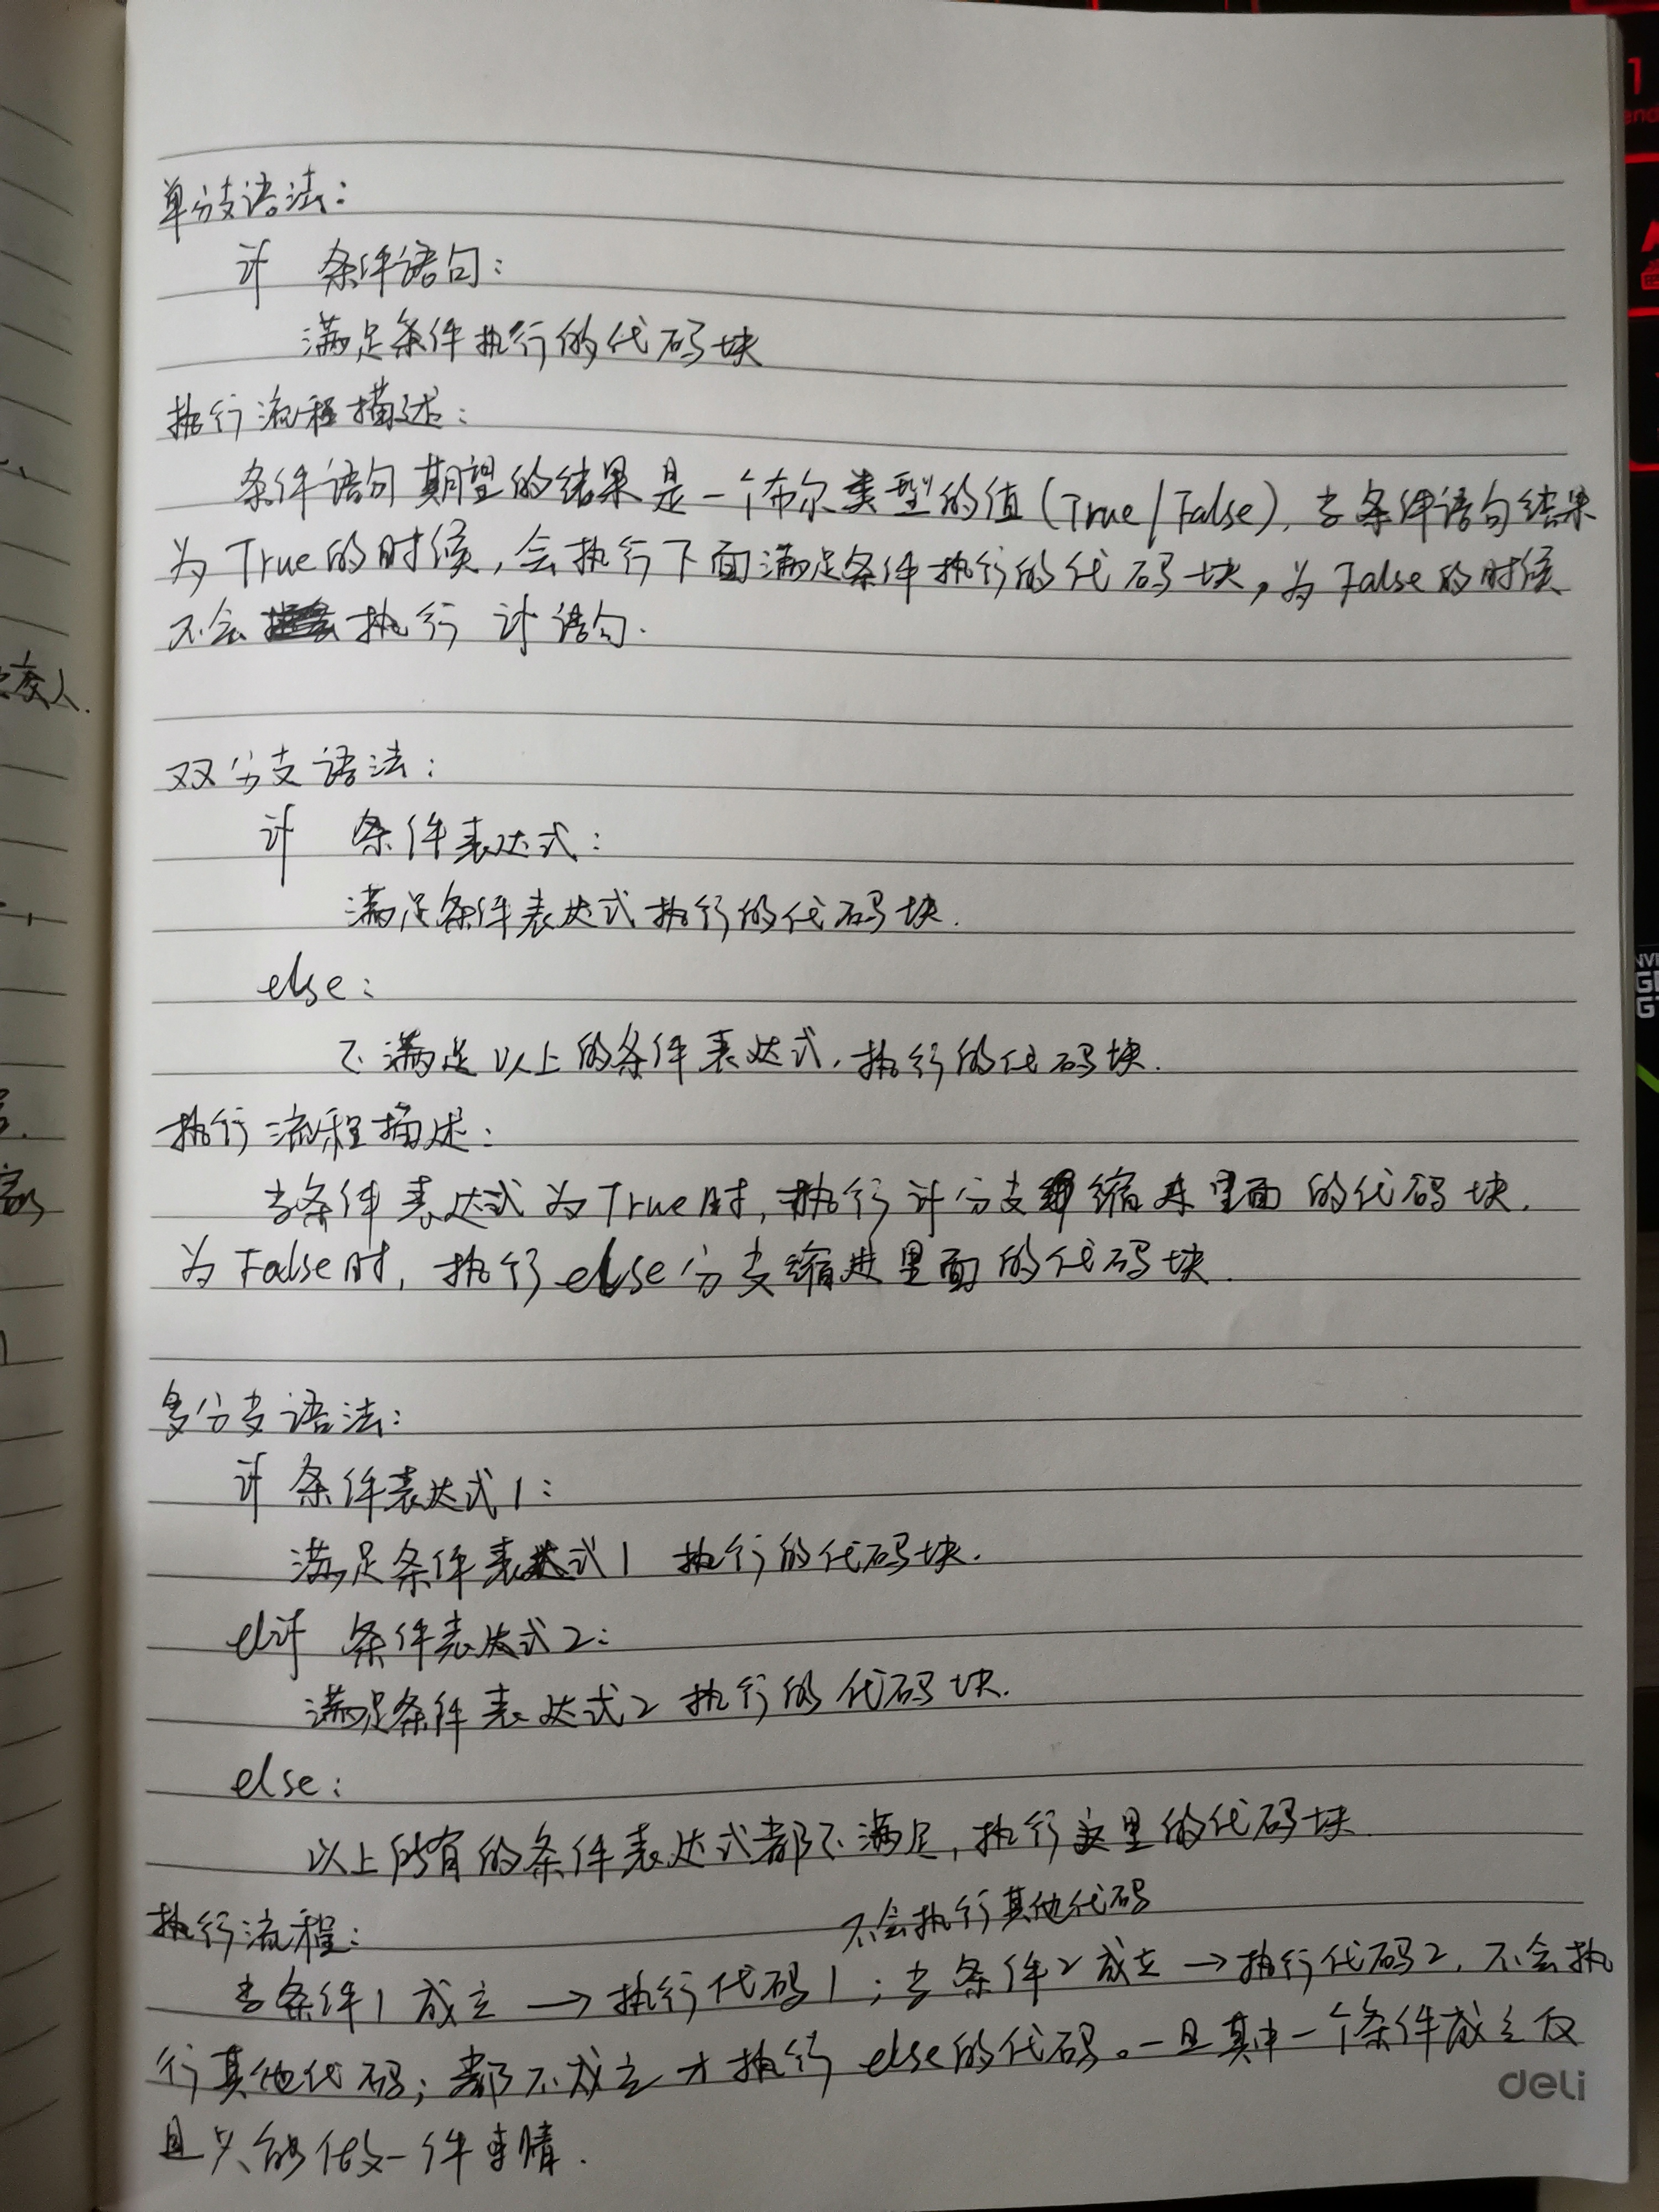 单分支语法：
if 条件语句：
满足条件执行的代码块
执行流程描述：
条件语句期望的结果是一个布尔类型的值(True/False)，当条件语句结果
为True的时候，会执行下面满足条件执行的代码块，为False的时候
不会执行 if语句.
双分支语法：
if 条件表达式：
满足条件表达式执行的代码块.
else：
不满足以上的条件表达式，执行的代码块.
执行流程描述：
当条件表达式为True时，执行if分支缩进里面的代码块.
为False时，执行else分支缩进里面的代码块.
多分支语法：
if 条件表达式1：
满足条件表达式1 执行的代码块.
elif 条件表达式2：
满足条件表达式2 执行的代码块.
else：
以上所有的条件表达式都不满足，执行这里的代码块.
执行流程：
不会执行其他代码
当条件1成立→执行代码1；当条件2成立→执行代码2，不会执
行其他代码；都不成立才执行else的代码。一旦其中一个条件成立仅
且只能做一件事情.
deli